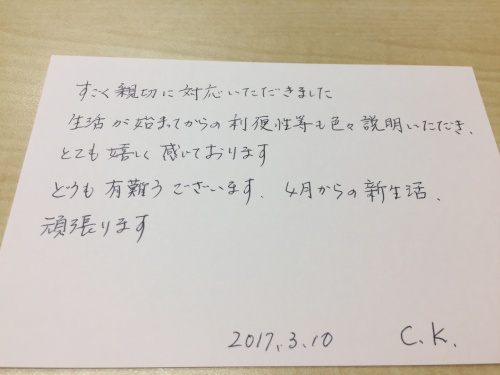 すごく親切に対応いただきました
生活が始まってからの利便性等も色々説明いただき、
とても嬉しく感じております
どうも有難うございます、4月からの新生活、
頑張ります
2017.3.10 C.K.